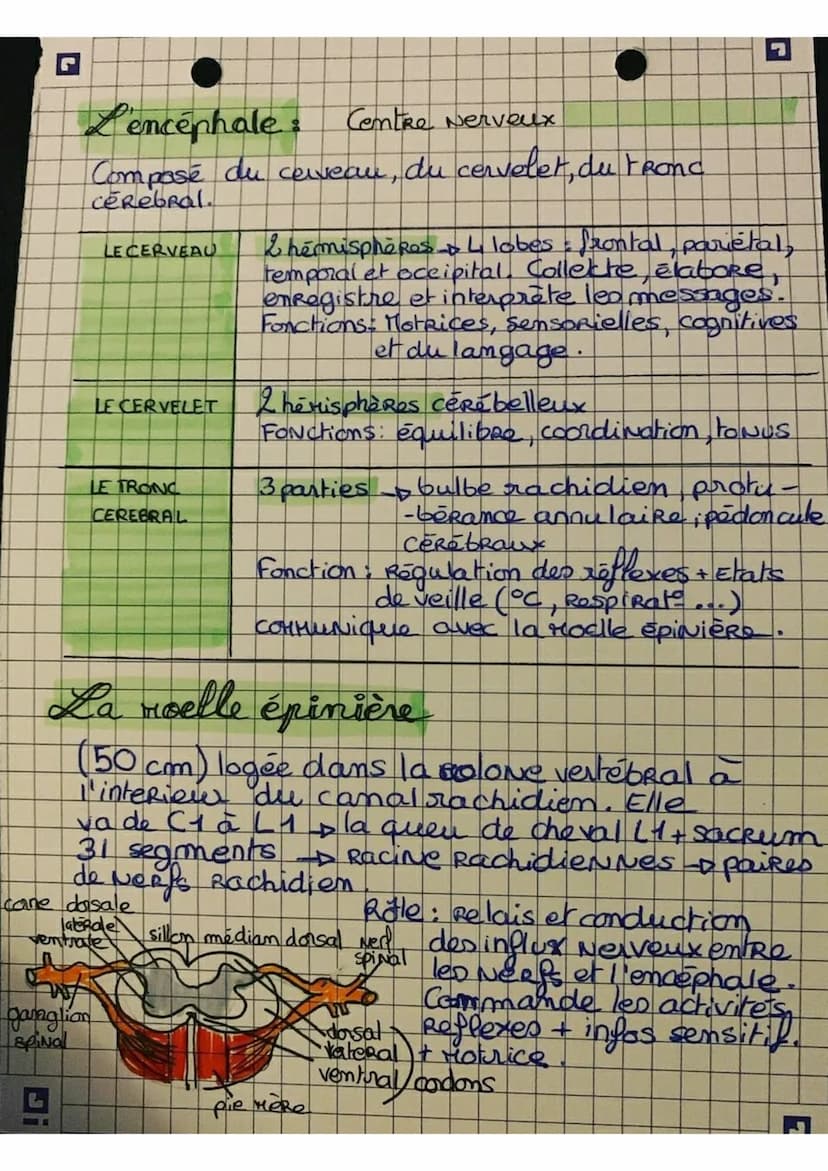 L'encéphale : Centre nerveux
Composé du cerveau, du cervelet, du tronc
cérébral.
LE CERVEAU
2 hémisphères → 4 lobes : frontal, pariétal,
temporal et occipital. Collecte, élabore,
enregistre et interprète les messages.
Fonctions : Motrices, sensorielles, cognitives
et du langage.
LE CERVELET
2 hémisphères cérébelleux
Fonctions : équilibre, coordination, tonus
LE TRONC
CEREBRAL
3 parties → bulbe rachidien, protu-
-bérance annulaire, pédoncule
cérébraux
Fonction : Régulation des réflexes + Etats
de veille (°C, Respirat° ...)
communique avec la moelle épinière.
La moelle épinière
(50 cm) logée dans la colone vertébral à
l'interieur du canal rachidien. Elle
va de C1 à L1 → la queu de cheval L1 + sacrum
31 segments → Racine Rachidiennes → paires
de nerfs Rachidien.
Rôle : Relais et conduction
des influx nerveux entre
les nerfs et l'encéphale.
Commande les activités
Reflexes + infos sensitif.
+ Motrice.
corne dorsale
latérale
ventrale
sillon médian dorsal
nerf
spinal
ganglion
spinal
dorsal
lateral
ventral
cordons
pie mère